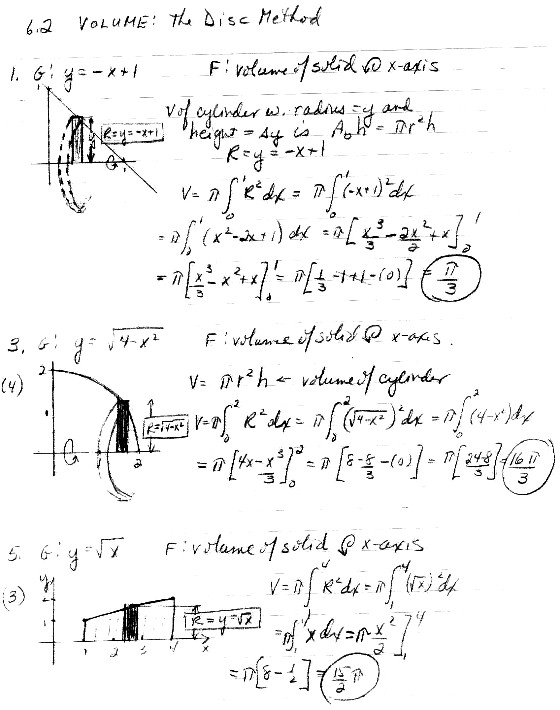 6.2 VOLUME: the Disc Method
1. G: y = -x+1 F: volume of solid @ x-axis
V of cylinder w. radius = y and
height = Δy is A_b h = πr²h
R = y = -x+1
R = y = -x+1
V = π ∫₀¹ R² dx = π ∫₀¹ (-x+1)² dx
= π ∫₀¹ (x² - 2x + 1) dx = π [x³/3 - 2x²/2 + x]₀¹
= π [x³/3 - x² + x]₀¹ = π [1/3 - 1 + 1 - (0)] = π/3
3. G: y = √4-x² F: volume of solid @ x-axis.
(4)
2
V = πr²h ← volume of cylinder
R = √4-x²
V = π ∫₀² R² dx = π ∫₀² (√4-x²)² dx = π ∫₀² (4-x²) dx
= π [4x - x³/3]₀² = π [8 - 8/3 - (0)] = π [24-8/3] = 16π/3
1 2
5. G: y = √x F: volume of solid @ x-axis
(3)
y
2
1
R = y = √x
1 2 3 4 x
V = π ∫₁⁴ R² dx = π ∫₁⁴ (√x)² dx
= π ∫₁⁴ x dx = π x²/2 ]₁⁴
= π [8 - 1/2] = 15/2 π